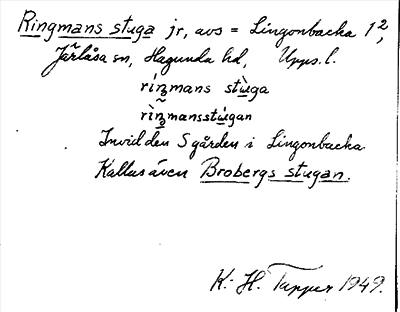 Ringmans stuga jr, avs = Lingonbacka 1²,
Järlåsa sn, Hagunda hd, Upps. l.
riŋmans stùga
rìŋmansstùgan
Invid den S gården i Lingonbacka.
Kallas även Brobergs stugan.
K.-H. Tapper 1949.